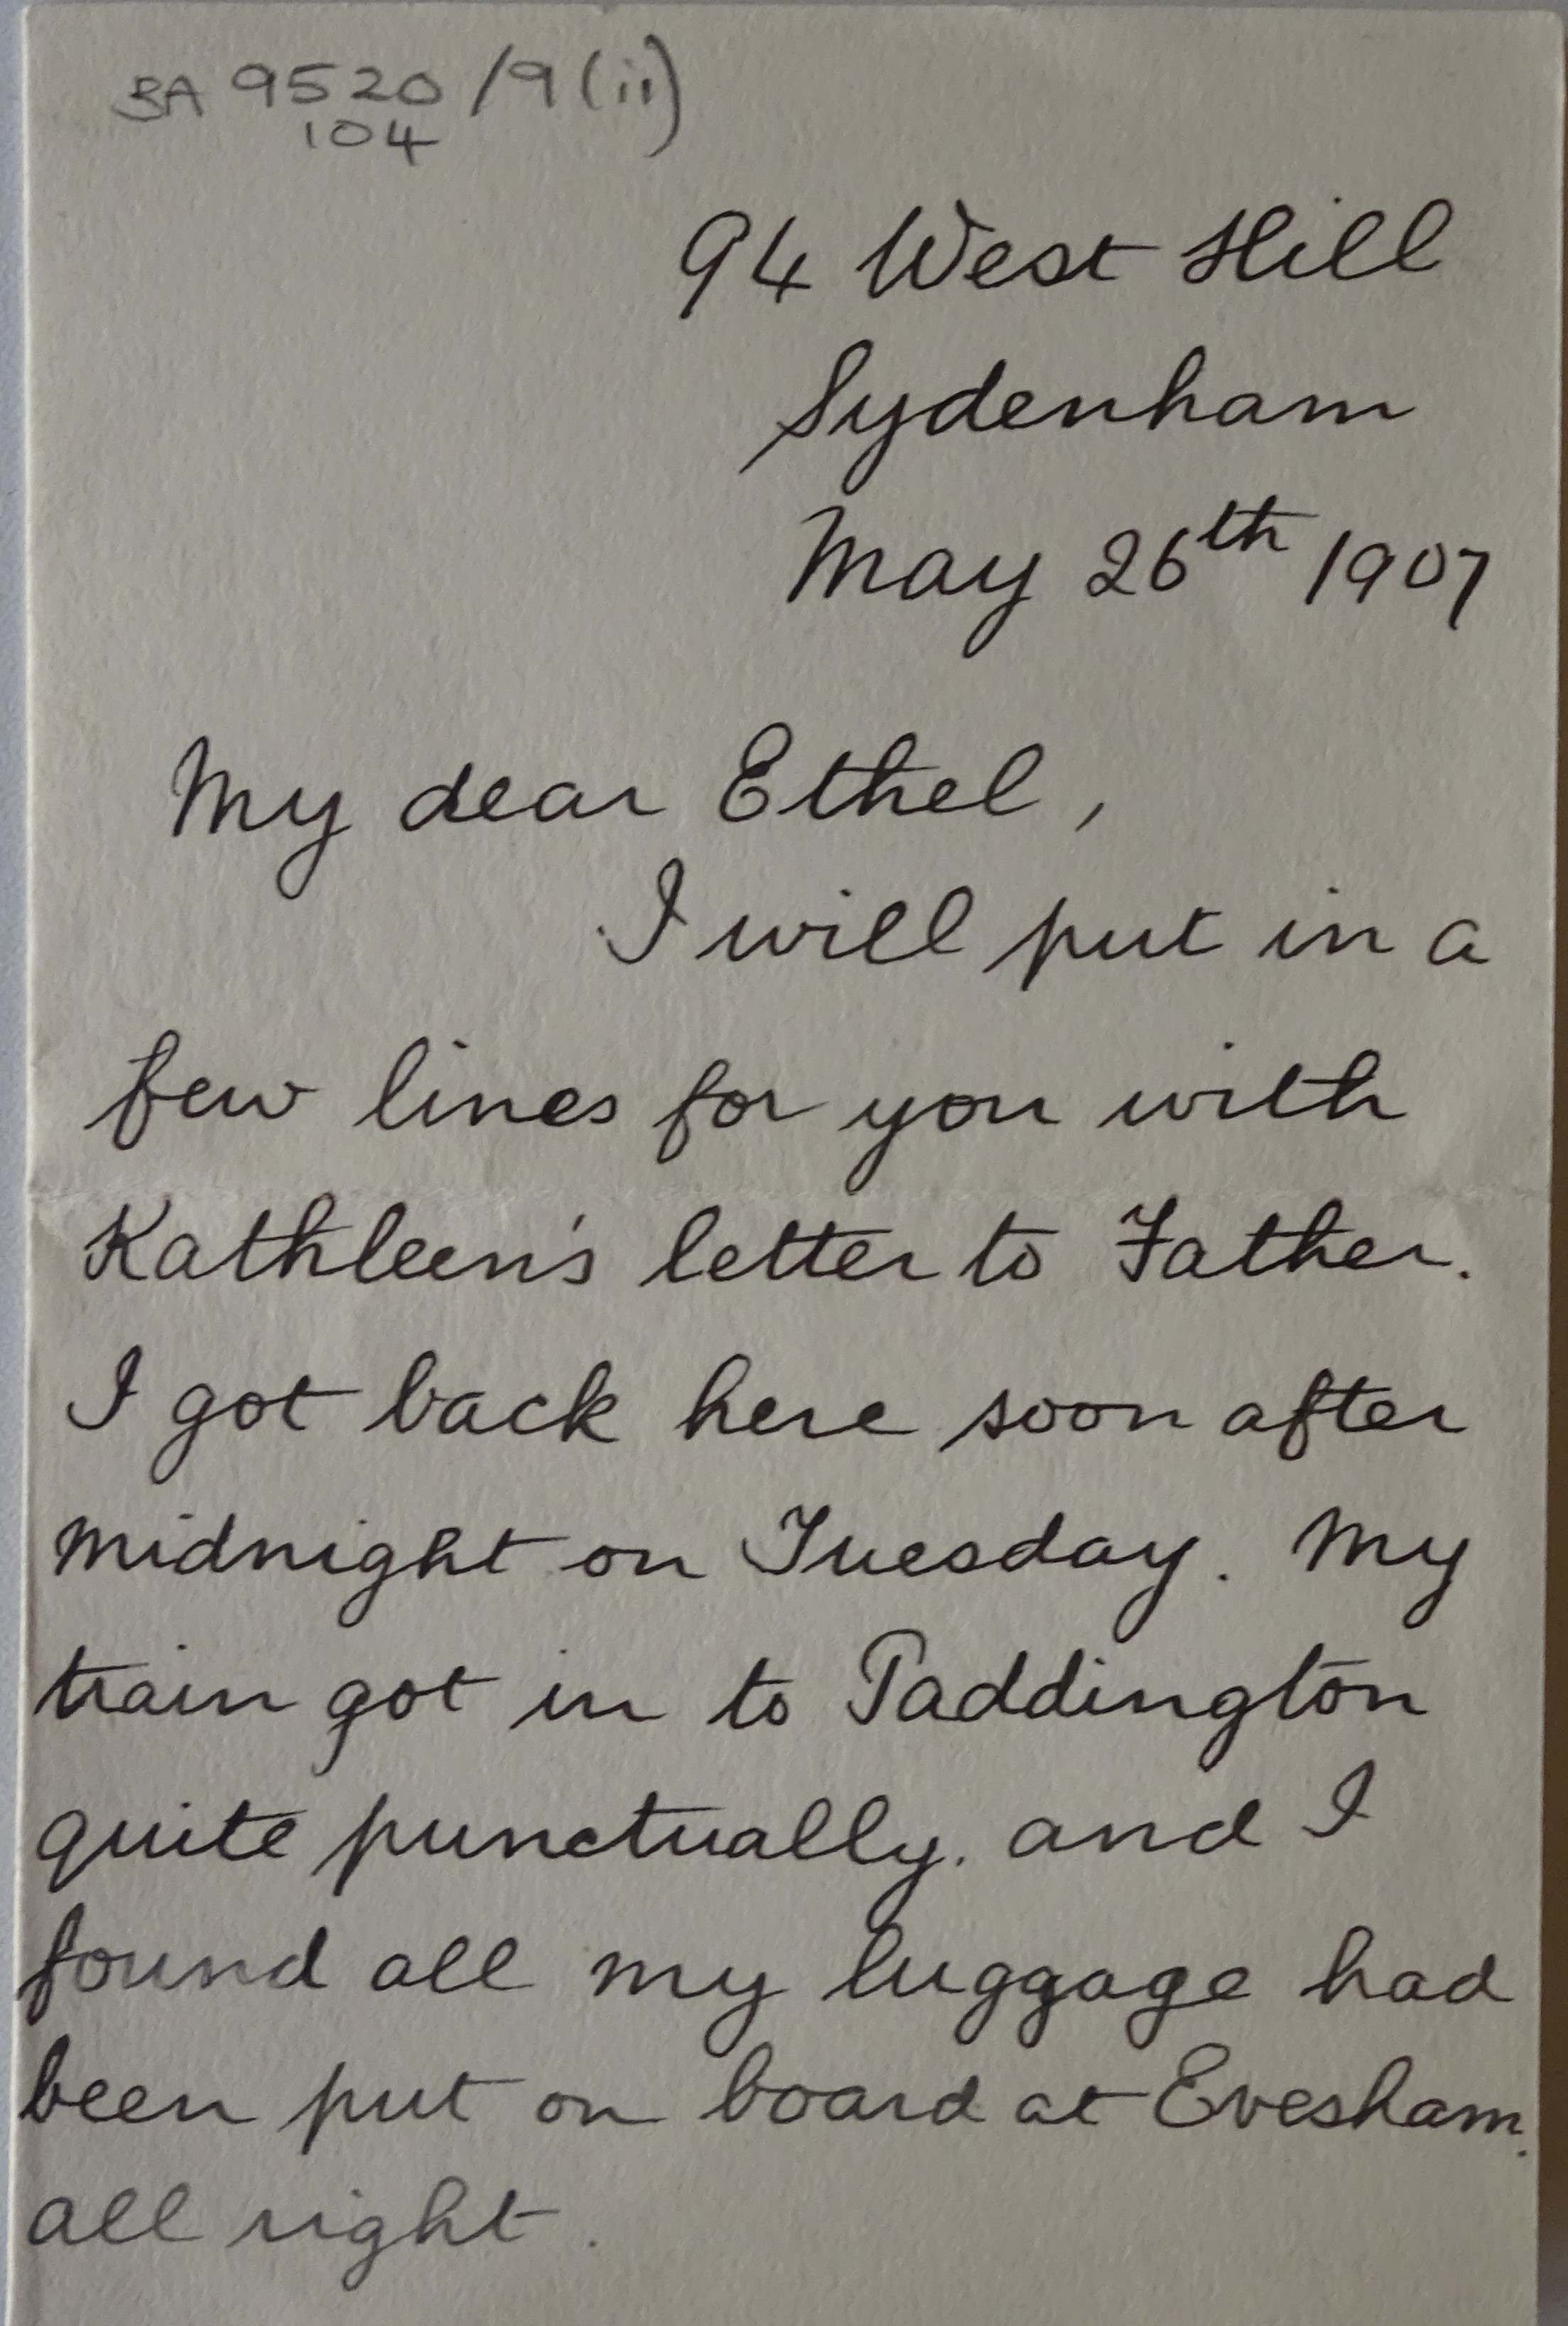 BA 9520/9(ii)
104
94 West Hill
Sydenham
May 26th 1907
My dear Ethel,
I will put in a
few lines for you with
Kathleen's letter to Father.
I got back here soon after
midnight on Tuesday. My
train got in to Paddington
quite punctually. and I
found all my luggage had
been put on board at Evesham.
all right.